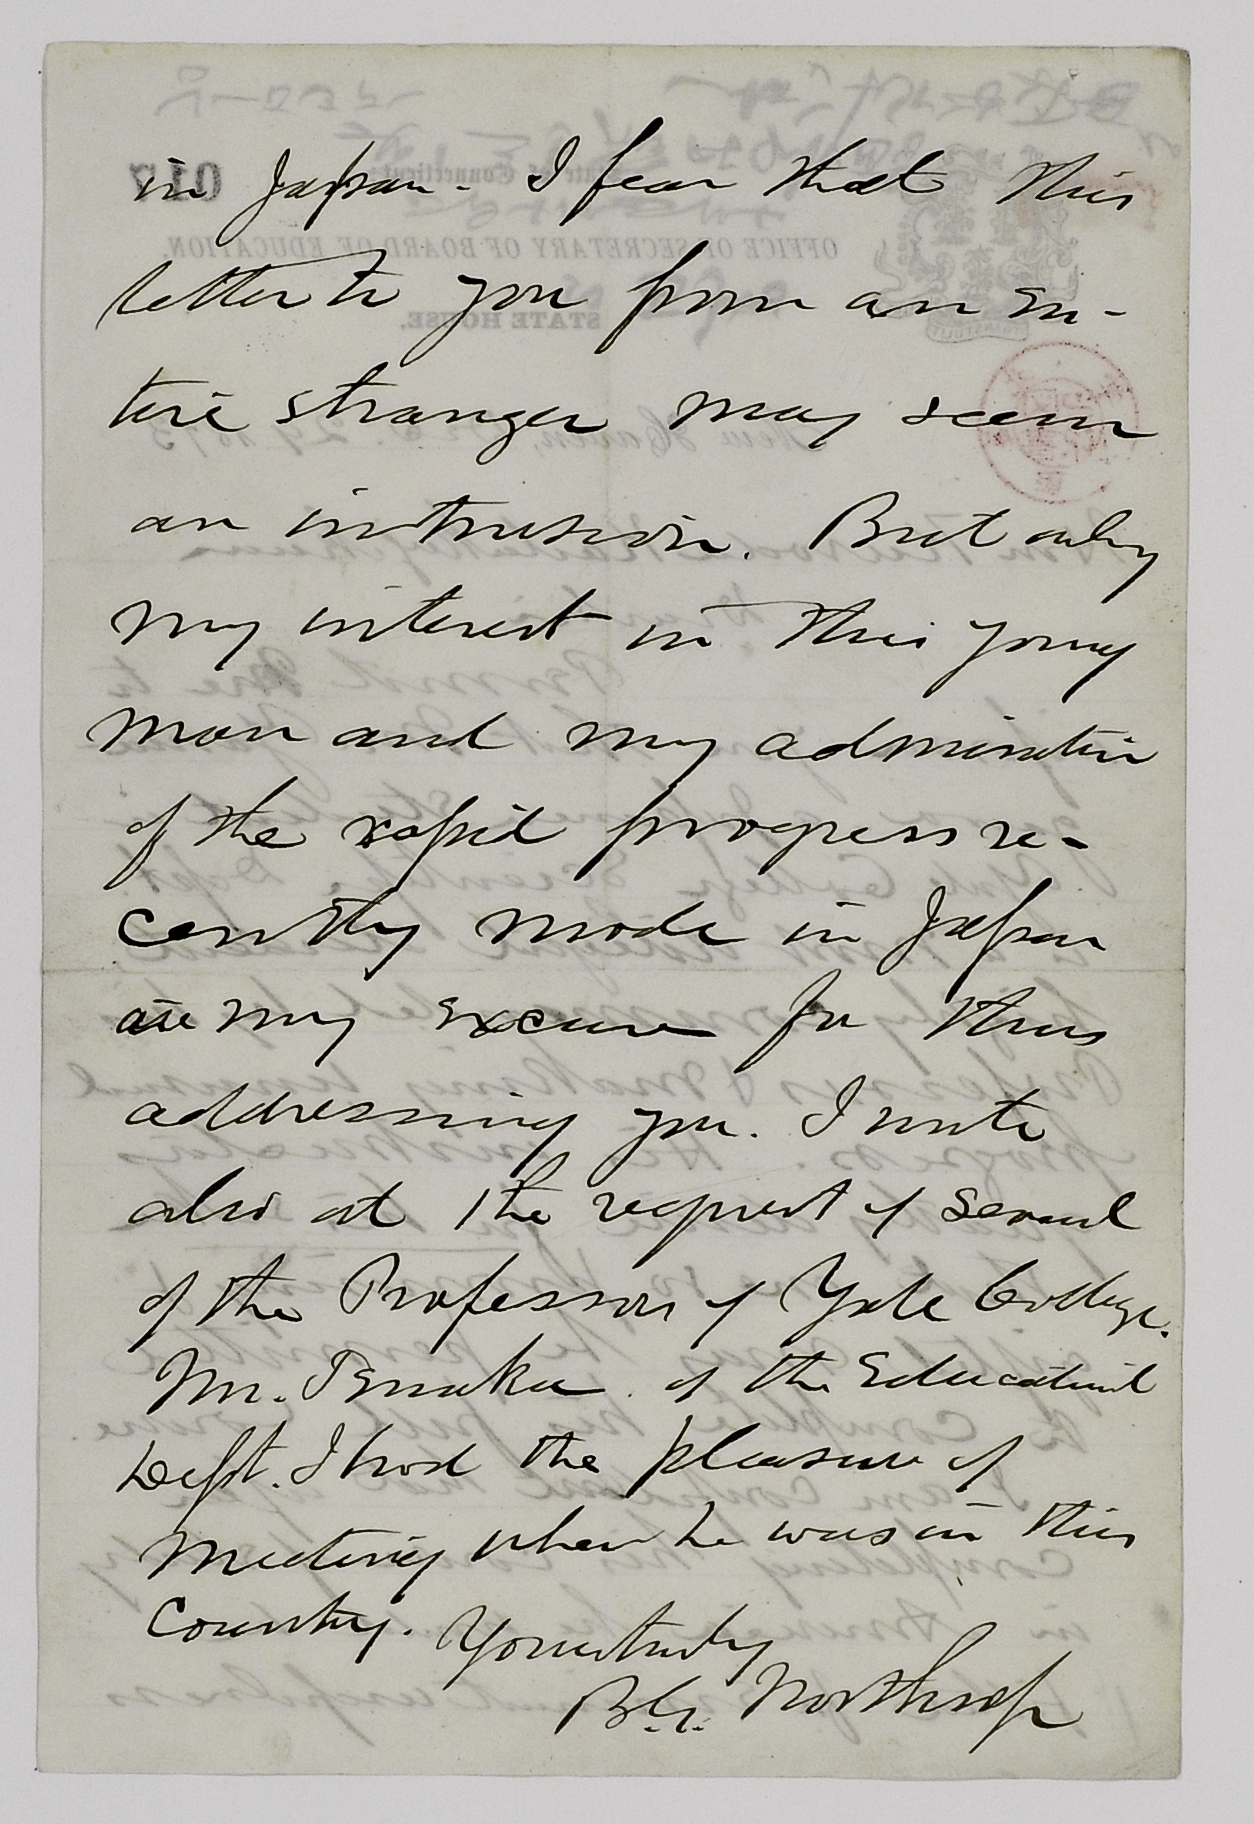 in Japan. I fear that this
letter to you from an en-
tire stranger may seem
an intrusion. But only
my interest in this young
man and my admiration
of the rapid progress re-
cently made in Japan
are my excuse for thus
addressing you. I write
also at the request of several
of the Professors of Yale College.
Mr. Tanaka of the Educational
Dept. I had the pleasure of
meeting when he was in this
Country. Yours truly
B.G. Northrop